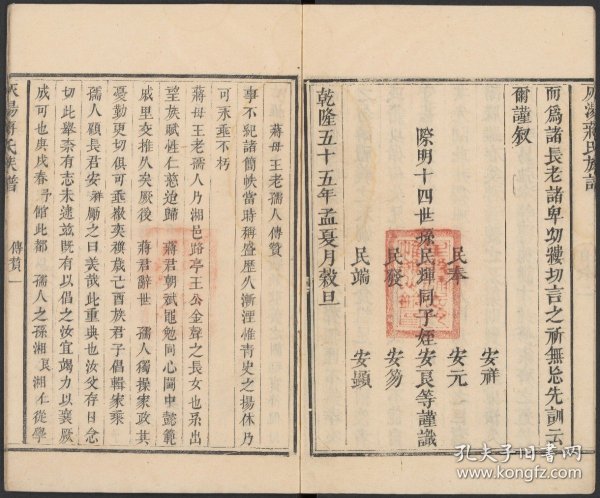 而爲諸長老諸卑幼懇切言之祈無忘先訓云
爾謹叙
安祥
民奉　安元
際明十四世孫民琿同子姪安良等謹識
民發　安笏
民端　安顯
乾隆五十五年孟夏月穀旦
蔣母王老孺人傳贊
事不紀諸簡帙當時稱盛歷久漸湮惟青史之揚休乃
可永垂不朽
蔣母王老孺人乃湘邑路亭王公金聲之長女也系出
望族賦性仁慈迨歸　蔣君朝斌黽勉同心閫中懿範
戚里交推久矣厥後　蔣君辭世　孺人獨操家政其
憂勤更切俱可垂嶽奕禩哉己酉族君子倡輯家乘
孺人顧長君安祥勵之曰美哉此重典也汝父存日念
切此舉柰有志未逮茲既有以倡之汝宜竭力以襄厥
成可也庚戌春予館此都　孺人之孫湘良湘仁從學
蔣氏族譜　傳贊　一
孔夫子旧书网
www.kongfz.com